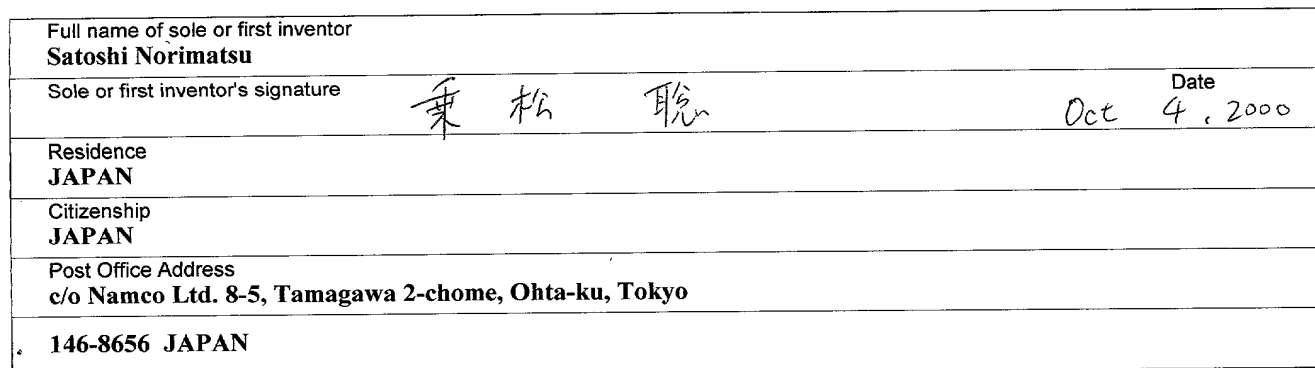 Full name of sole or first inventor
Satoshi Norimatsu
Sole or first inventor's signature
乗松 聡
Date
Oct 4, 2000
Residence
JAPAN
Citizenship
JAPAN
Post Office Address
c/o Namco Ltd. 8-5, Tamagawa 2-chome, Ohta-ku, Tokyo
146-8656 JAPAN